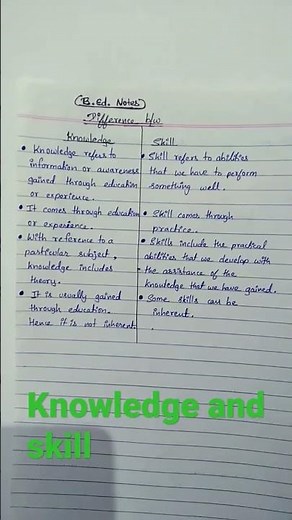 (B.Ed. Notes)
Difference b/w
Knowledge
• Knowledge refers to
information or awareness
gained through education
or experience.
• It comes through education
or experience.
• With reference to a
particular subject,
knowledge includes
theory.
• It is usually gained
through education.
Hence it is not inherent.
Skill
• Skill refers to abilities
that we have to perform
something well.
• Skill comes through
practice.
• Skills include the practical
abilities that we develop with
the assistance of the
knowledge that we have gained.
• Some skills can be
inherent.
Knowledge and
skill